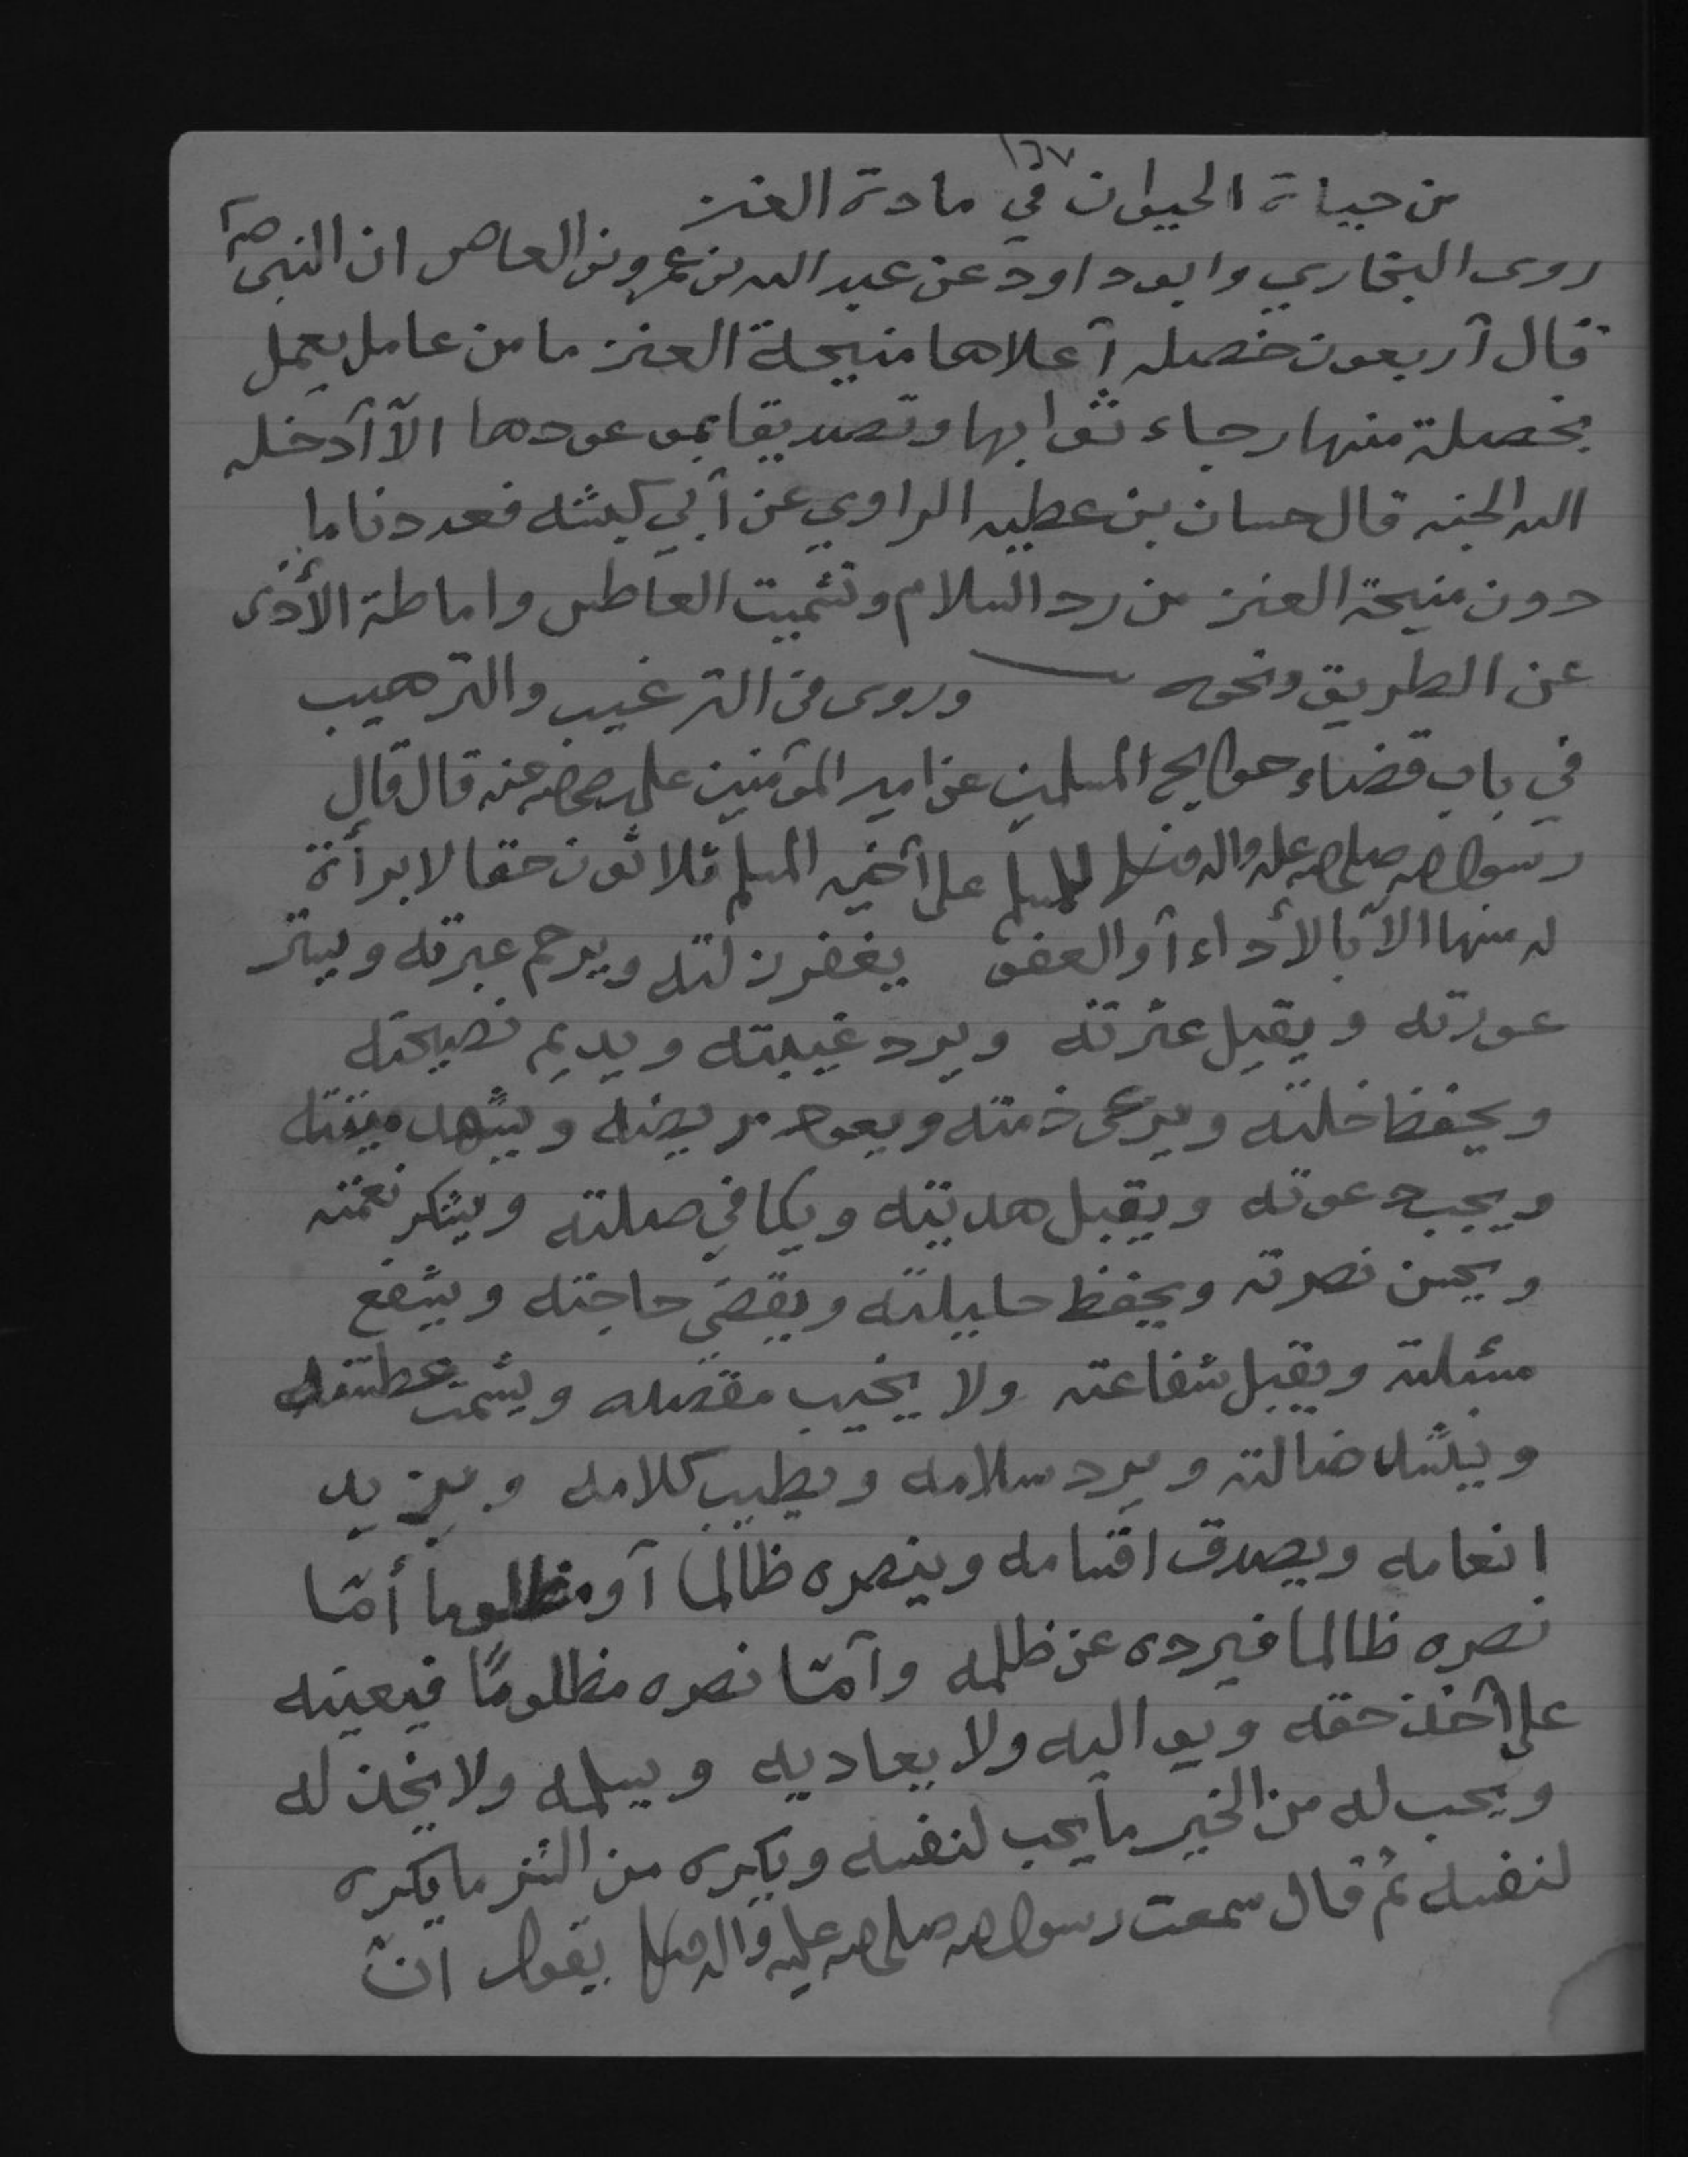 ١٦٧
من حياة الحيوان في مادة العنز
روى البخاري وابوداود عن عبد الله بن عمرو بن العاص ان النبي ص
قال أربعون خصله أعلاها منيحة العنز ما من عامل يعمل
بخصلة منها رجاء ثوابها وتصديقا بموعودها الا أدخله
الله الجنه قال حسان بن عطيه الراوي عن أبي كبشه فعددنا ما
دون منيحة العنز من رد السلام وتشميت العاطس واماطة الأذى
عن الطريق ونحوه وروى في الترغيب والترهيب
في باب قضاء حوايج المسلمين عن امير المؤمنين علي رضي الله عنه قال قال
رسول الله صلى الله عليه واله وسلم للمسلم على أخيه المسلم ثلاثون حقا لا براءة
له منها الا بالأداء أو العفو يغفر زلته ويرحم عبرته ويستر
عورته ويقيل عثرته ويرد غيبته ويديم نصيحته
ويحفظ خلته ويرعى ذمته ويعود مريضه ويشهد ميتته
ويجيب دعوته ويقبل هديته ويكافي صلته ويشكر نعمته
ويحسن نصرته ويحفظ حليلته ويقضي حاجته ويشفع
مسئلته ويقبل شفاعته ولا يخيب مقصده ويشمت عطسته
وينشد ضالته ويرد سلامه ويطيب كلامه ويزيد
انعامه ويصدق اقسامه وينصره ظالما أو مظلوما أمّا
نصره ظالما فيرده عن ظلمه وأمّا نصره مظلومًا فيعينه
على أخذ حقه ويواليه ولا يعاديه ويسلمه ولا يخذله
ويحب له من الخير ما يحب لنفسه ويكره من الشر ما يكره
لنفسه ثم قال سمعت رسول الله صلى الله عليه واله وسلم يقول انّ